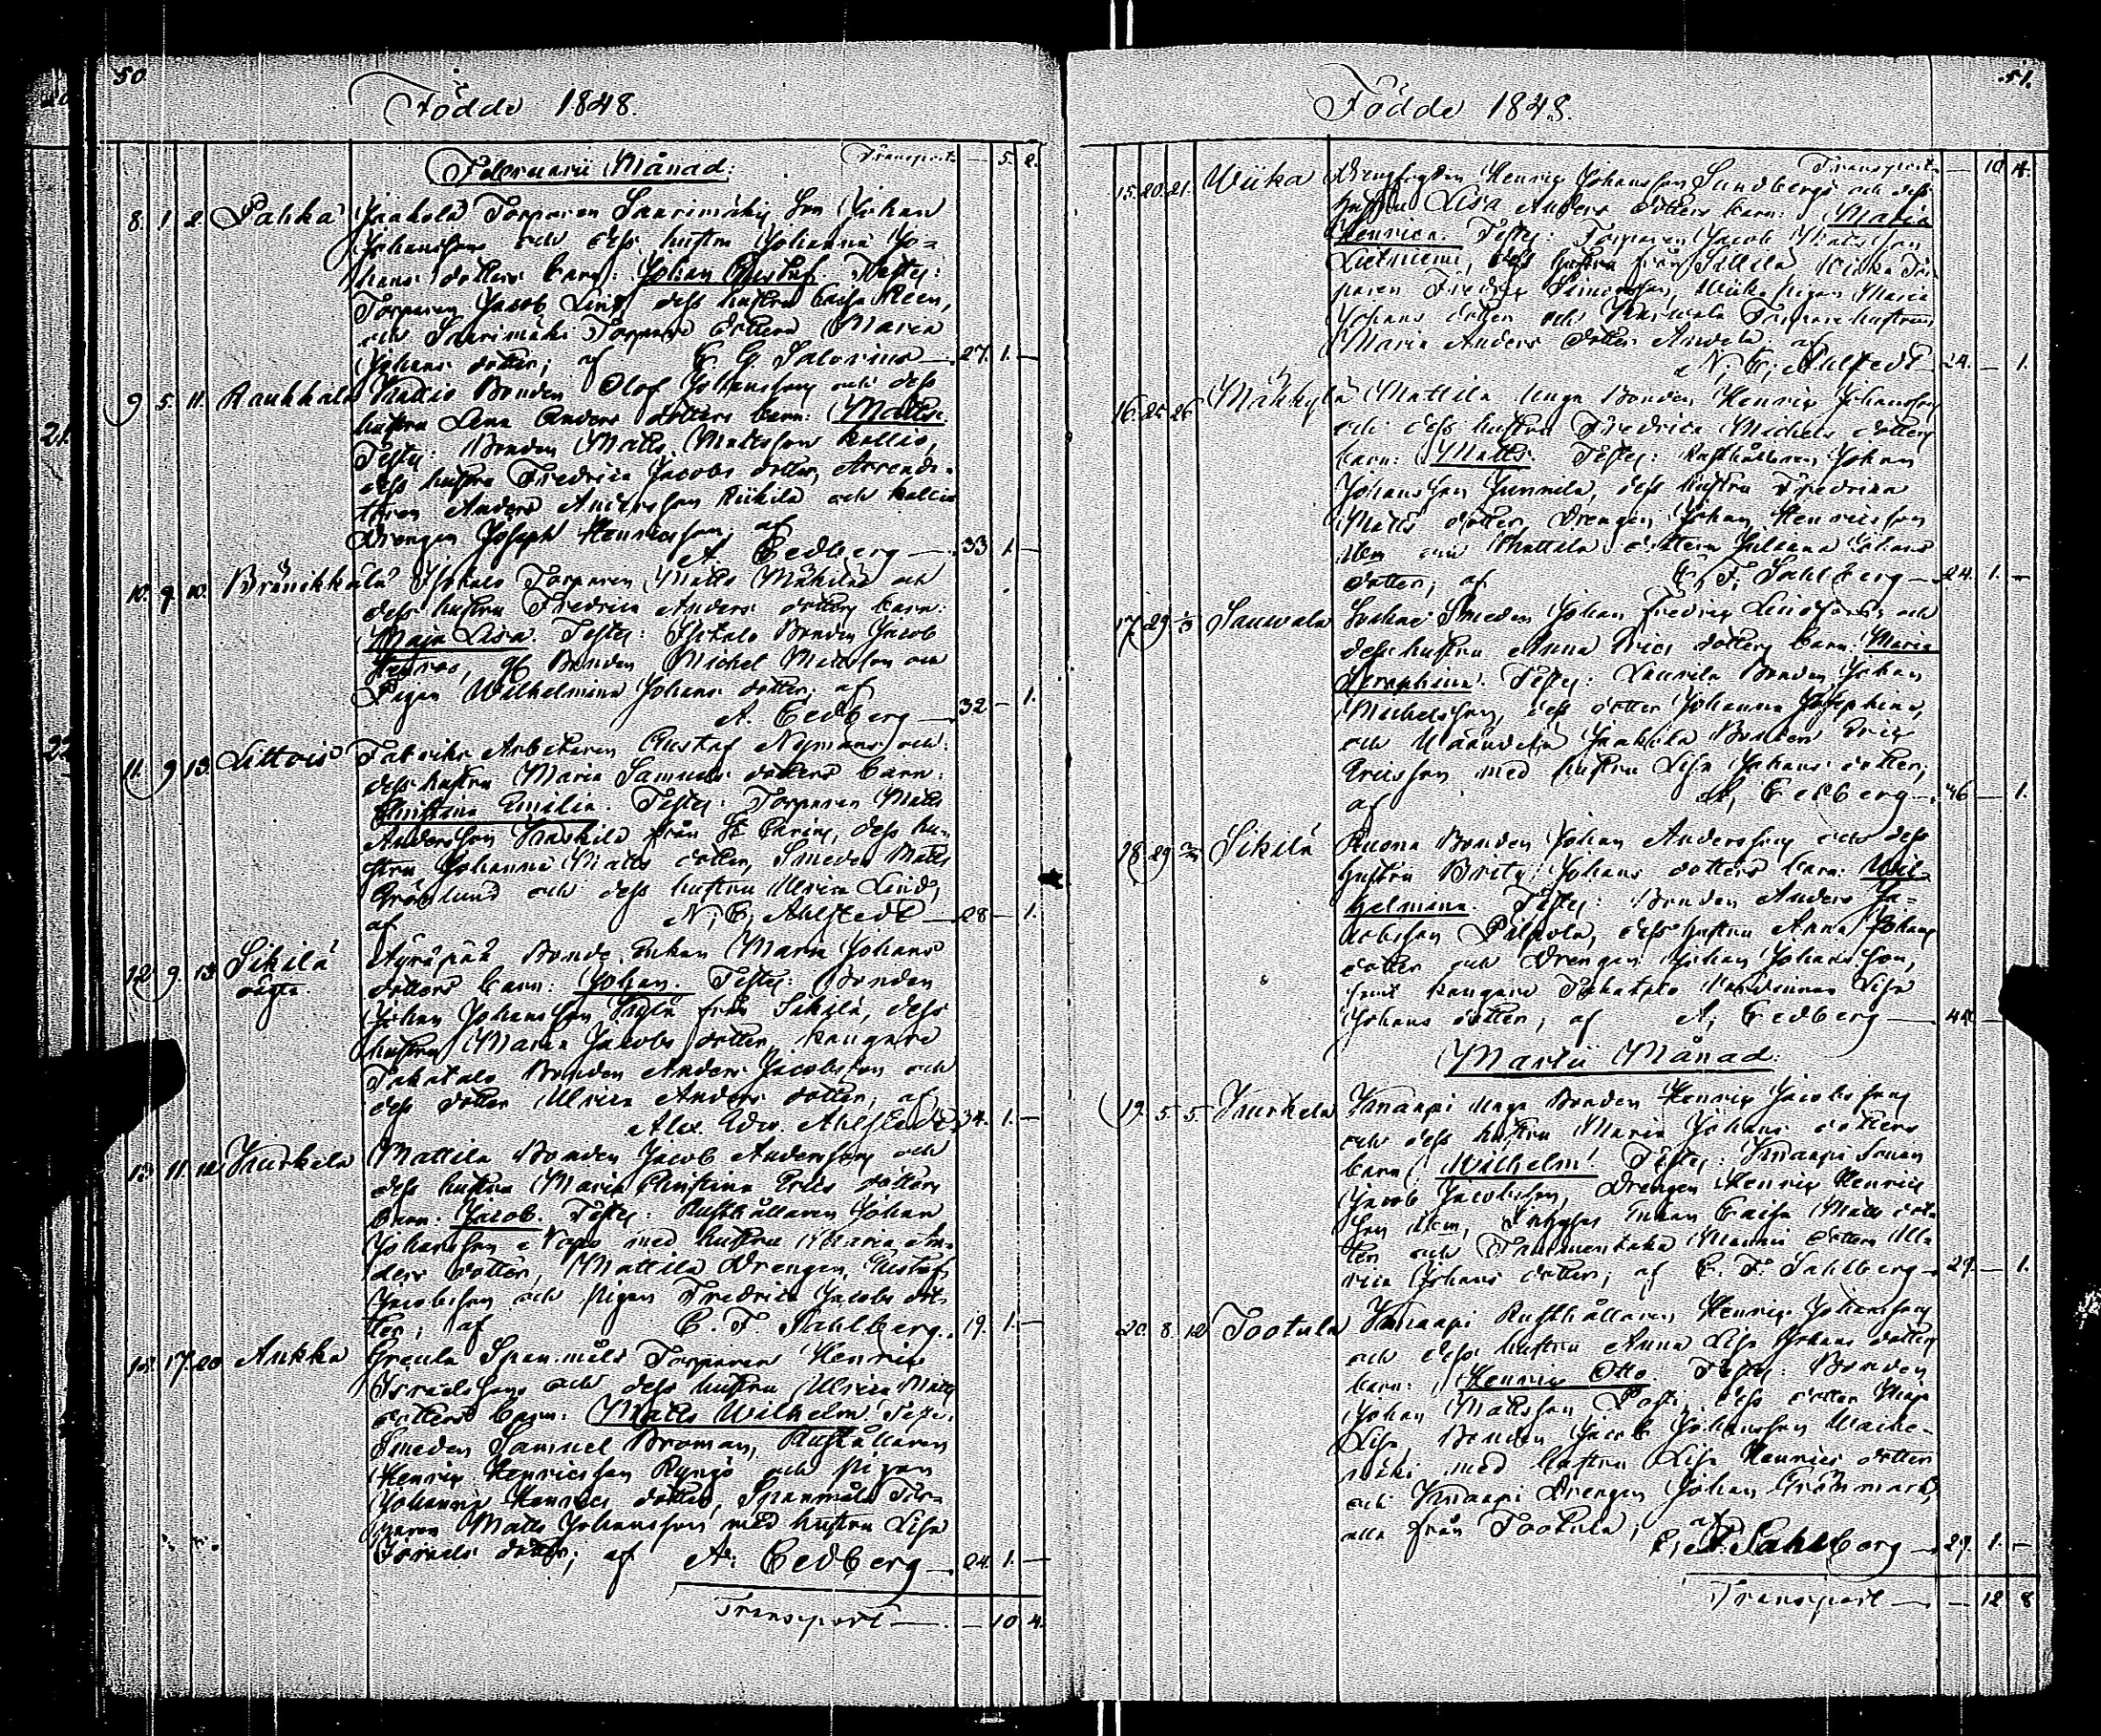 50.
Födde 1848.
Februarii Månad: Transport — 5. 2.
8. 1 2 Pahka Jaakola Torparen Saarimäki Son Johan
Johansson och dess hustru Johanna Jo=
hans dotters barn: Johan Gustaf. Testes:
Torparen Jacob Lind, dess hustru Caisa Steen,
och Saarimäki Torpare dottern Maria
Johans dotter; af C. G. Salovius — 27. 1. —
9 5. 11. Raukkala Kallio Bonden Olof Johansson och dess
hustru Lena Anders dotters barn: Matts.
Testes: Bonden Matts Mattsson Kallio,
dess hustru Fredrica Jacobs dotter, Arrenda-
toren Anders Andersson Riihilä och Kallio
Drengen Joseph Henricsson; af
A. Cedberg — 33 1. —
10. 9. 10. Bränikkälä Torparen Matts Mäkilä och
dess hustru Fredrica Anders dotters barn:
Maja Lisa. Testes: Bonden Jacob
Bonden Michel Mattsson och
Pigan Wilhelmina Johans dotter; af
A. Cedberg — 32 — 1.
11. 9 13. Littois Fabriks Arbetaren Gustaf Nyman och
dess hustru Maria Samuels dotters barn:
Christina Emilia. Testes: Torparen Matts
Andersson från St Carins, dess hu-
stru Johanna Matts dotter, Smeden Matts
Grönlund och dess hustru Ulrica Lind,
af N. C. Ahlstedt — 28 — 1.
12 9. 13 Sikilä Äyräpää Bonde Enkan Maria Johans
oägta. dotters barn: Johan. Testes: Bonden
Johan Johansson från Sikilä, dess
hustru Maria Jacobs dotter, Kangare
Takatalo Bonden Anders Jacobsson och
dess dotter Ulrica Anders dotter; af
Alex. Edv. Ahlstedt 34. 1. —
13 11. 12 Kurkela Mattila Bonden Jacob Andersson och
dess hustru Maria Christina Erics dotters
barn: Jacob. Testes: Rusthållaren Johan
Johansson med hustru Maria An-
ders dotter, Mattila Drengen Gustaf
Jacobsson och pigan Fredrica Jacobs dot-
ter; af C. F. Sahlberg. 19. 1. —
14. 17. 20 Aukka Greula Spanmåls Torparen Henric
Israelsson och dess hustru Ulrica Matts
dotters barn: Matts Wilhelm. Testes:
Smeden Samuel Broman, Rusthållaren
Henric Henricsson Ryngö och pigan
Johanna Henrics dotter, Spanmåls Tor-
paren Matts Johansson med hustru Lisa
Israels dotter; af A. Cedberg — 24. 1. —
Transport — — 10 4.
51.
Födde 1848.
Transport — 10 4.
15. 20. 21. Wiika Drengfogden Henric Johansson Sundberg och dess
hustru Lisa Anders dotters barn: Maria
Henrica. Testes: Torparen Jacob Mattsson
Lietniemi, dess hustru från Sillilä, Wiika Tor-
paren Fredric Simonsson, Wiika pigan Maria
Johans dotter och Torpare hustrun
Maria Anders dotter; af
N. C. Ahlstedt 24. — 1.
16. 25 26 Mäkkylä Mattila Unga Bonden Henric Johansson
och dess hustru Fredrica Michels dotters
barn: Matts. Testes: Rusthållaren Johan
Johansson Junnila, dess hustru Fredrica
Matts dotter, Drengen Johan Henricsson
och Mattila dottern Juliana Johans
dotter; af C. F. Sahlberg — 24. 1. —
17. 29. 1/3 Sauwala Smeden Johan Fredric Lindfors och
dess hustru Anna Erics dotters barn: Maria
Seraphina. Testes: Laurila Bonden Johan
Michelsson, dess dotter Johanna Josephina,
och Jaakkola Bonden Eric
Ericsson med hustru Lisa Johans dotter;
af A. Cedberg — 46 — 1.
18 29 Sikilä Ruona Bonden Johan Andersson och dess
hustru Brita Johans dotters barn: Wil-
helmina. Testes: Bonden Anders Ja-
cobsson Pilpola, dess hustru Anna Johans
dotter och Drengen Johan Johansson,
samt Kangare Takatalo Wärdinnan Lisa
Johans dotter; af A. Cedberg — 44
Martii Månad:
19. 5 5. Kurkela Knaapi Unga Bonden Henric Jacobsson
och dess hustru Maria Johans dotters
barn: Wilhelm. Testes: Knaapi Sonen
Jacob Jacobsson, Drengen Henric Henrics
son Enkan Caisa Matts dot-
ter och dottern Ul-
rica Johans dotter; af C. F. Sahlberg — 29. — 1.
20. 8. 12 Tootula Knaapi Rusthållaren Henric Johansson
och dess hustru Anna Lisa Johans dotters
barn: Henric Otto. Testes: Bonden
Johan Mattsson Posti, dess dotter Maja
Lisa, Bonden Jacob Johansson Waine-
mäki med hustru Lisa Henrics dotter
och Knaapi Drengen Johan Grönmark,
alla från Tootula; af
C. F. Sahlberg — 29. 1. —
Transport — — 12 8